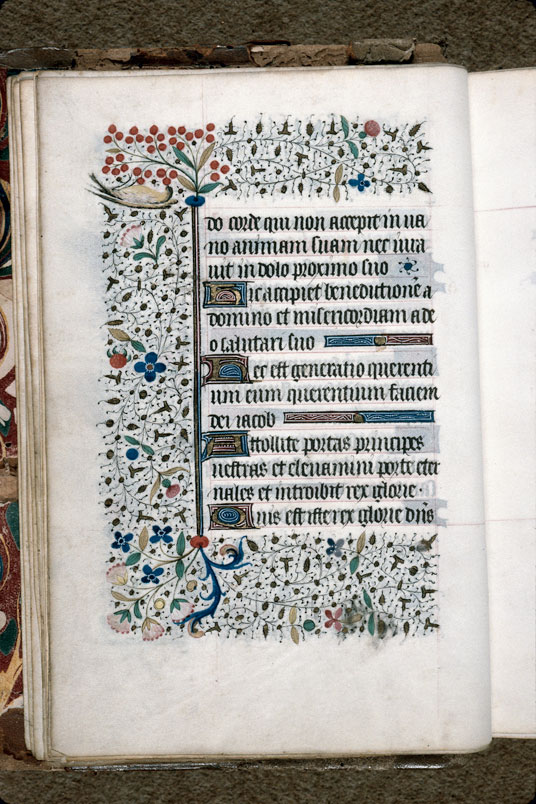 do corde qui non accepit in ua
no animam suam nec iura
uit in dolo proximo suo
Hic accipiet benedictione a
domino et misericordiam a de
o salutari suo
Hec est generatio querenti
um eum querentium faciem
dei iacob
Attollite portas principes
uestras et eleuamini porte eter
nales et introibit rex glorie
Quis est iste rex glorie dns